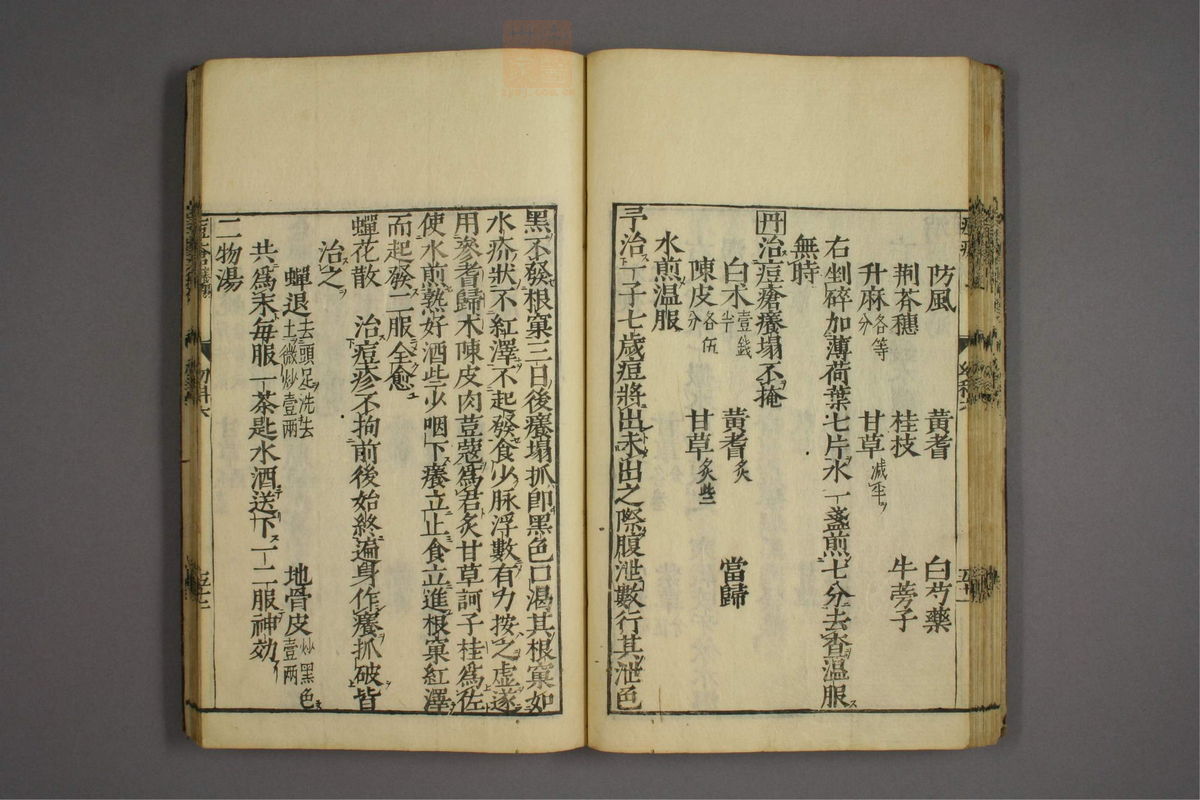 防風 黃耆 白芍藥
荆芥穗 桂枝 牛蒡子
升麻各等分 甘草減半
右剉碎加薄荷葉七片水一盞煎七分去查溫服
無時
丹治痘瘡癢塌不掩
白朮壹錢半 黃耆炙 當歸
陳皮各伍分 甘草炙些
水煎溫服
予治一子七歲痘將出未出之際腹泄數行其泄色
黑不發根窠三日後癢塌抓卽黑色口渴其根窠如
水疥狀不紅澤不起發食少脉浮數有力按之虛遂
用參耆歸朮陳皮肉荳蔻爲君炙甘草訶子桂爲佐
使水煎熟好酒些少咽下癢立止食立進根窠紅澤
而起發二服全愈
蟬花散 治痘疹不拘前後始終遍身作癢抓破皆
治之
蟬退去頭足洗去土微炒壹兩 地骨皮炒黑色壹兩
共爲末每服一茶匙水酒送下一二服神效
二物湯